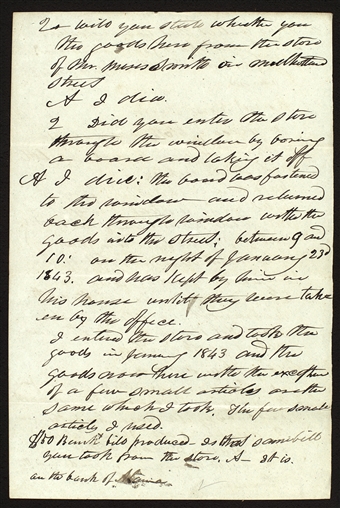 2 - Will you state whether you
the goods here from the store
of Mr. Moses Smith in
Street
A I did.
2 Did you enter the store
through the window by boring
a board and taking it off
A I did: the board was fastened
to the window and returned
back through window with the
goods into the street; between 9 and
10: on the night of January 23d
1843. and was kept by him in
his house until they were take
en by the office.
I entered the store and took the
goods in January 1843 and the
goods now here with the exception
of a few small articles are the
same which I took. The few small
articles I used.
$50 Bank bill produced - Is that same bill
you took from the store. A - It is.
on the bank of